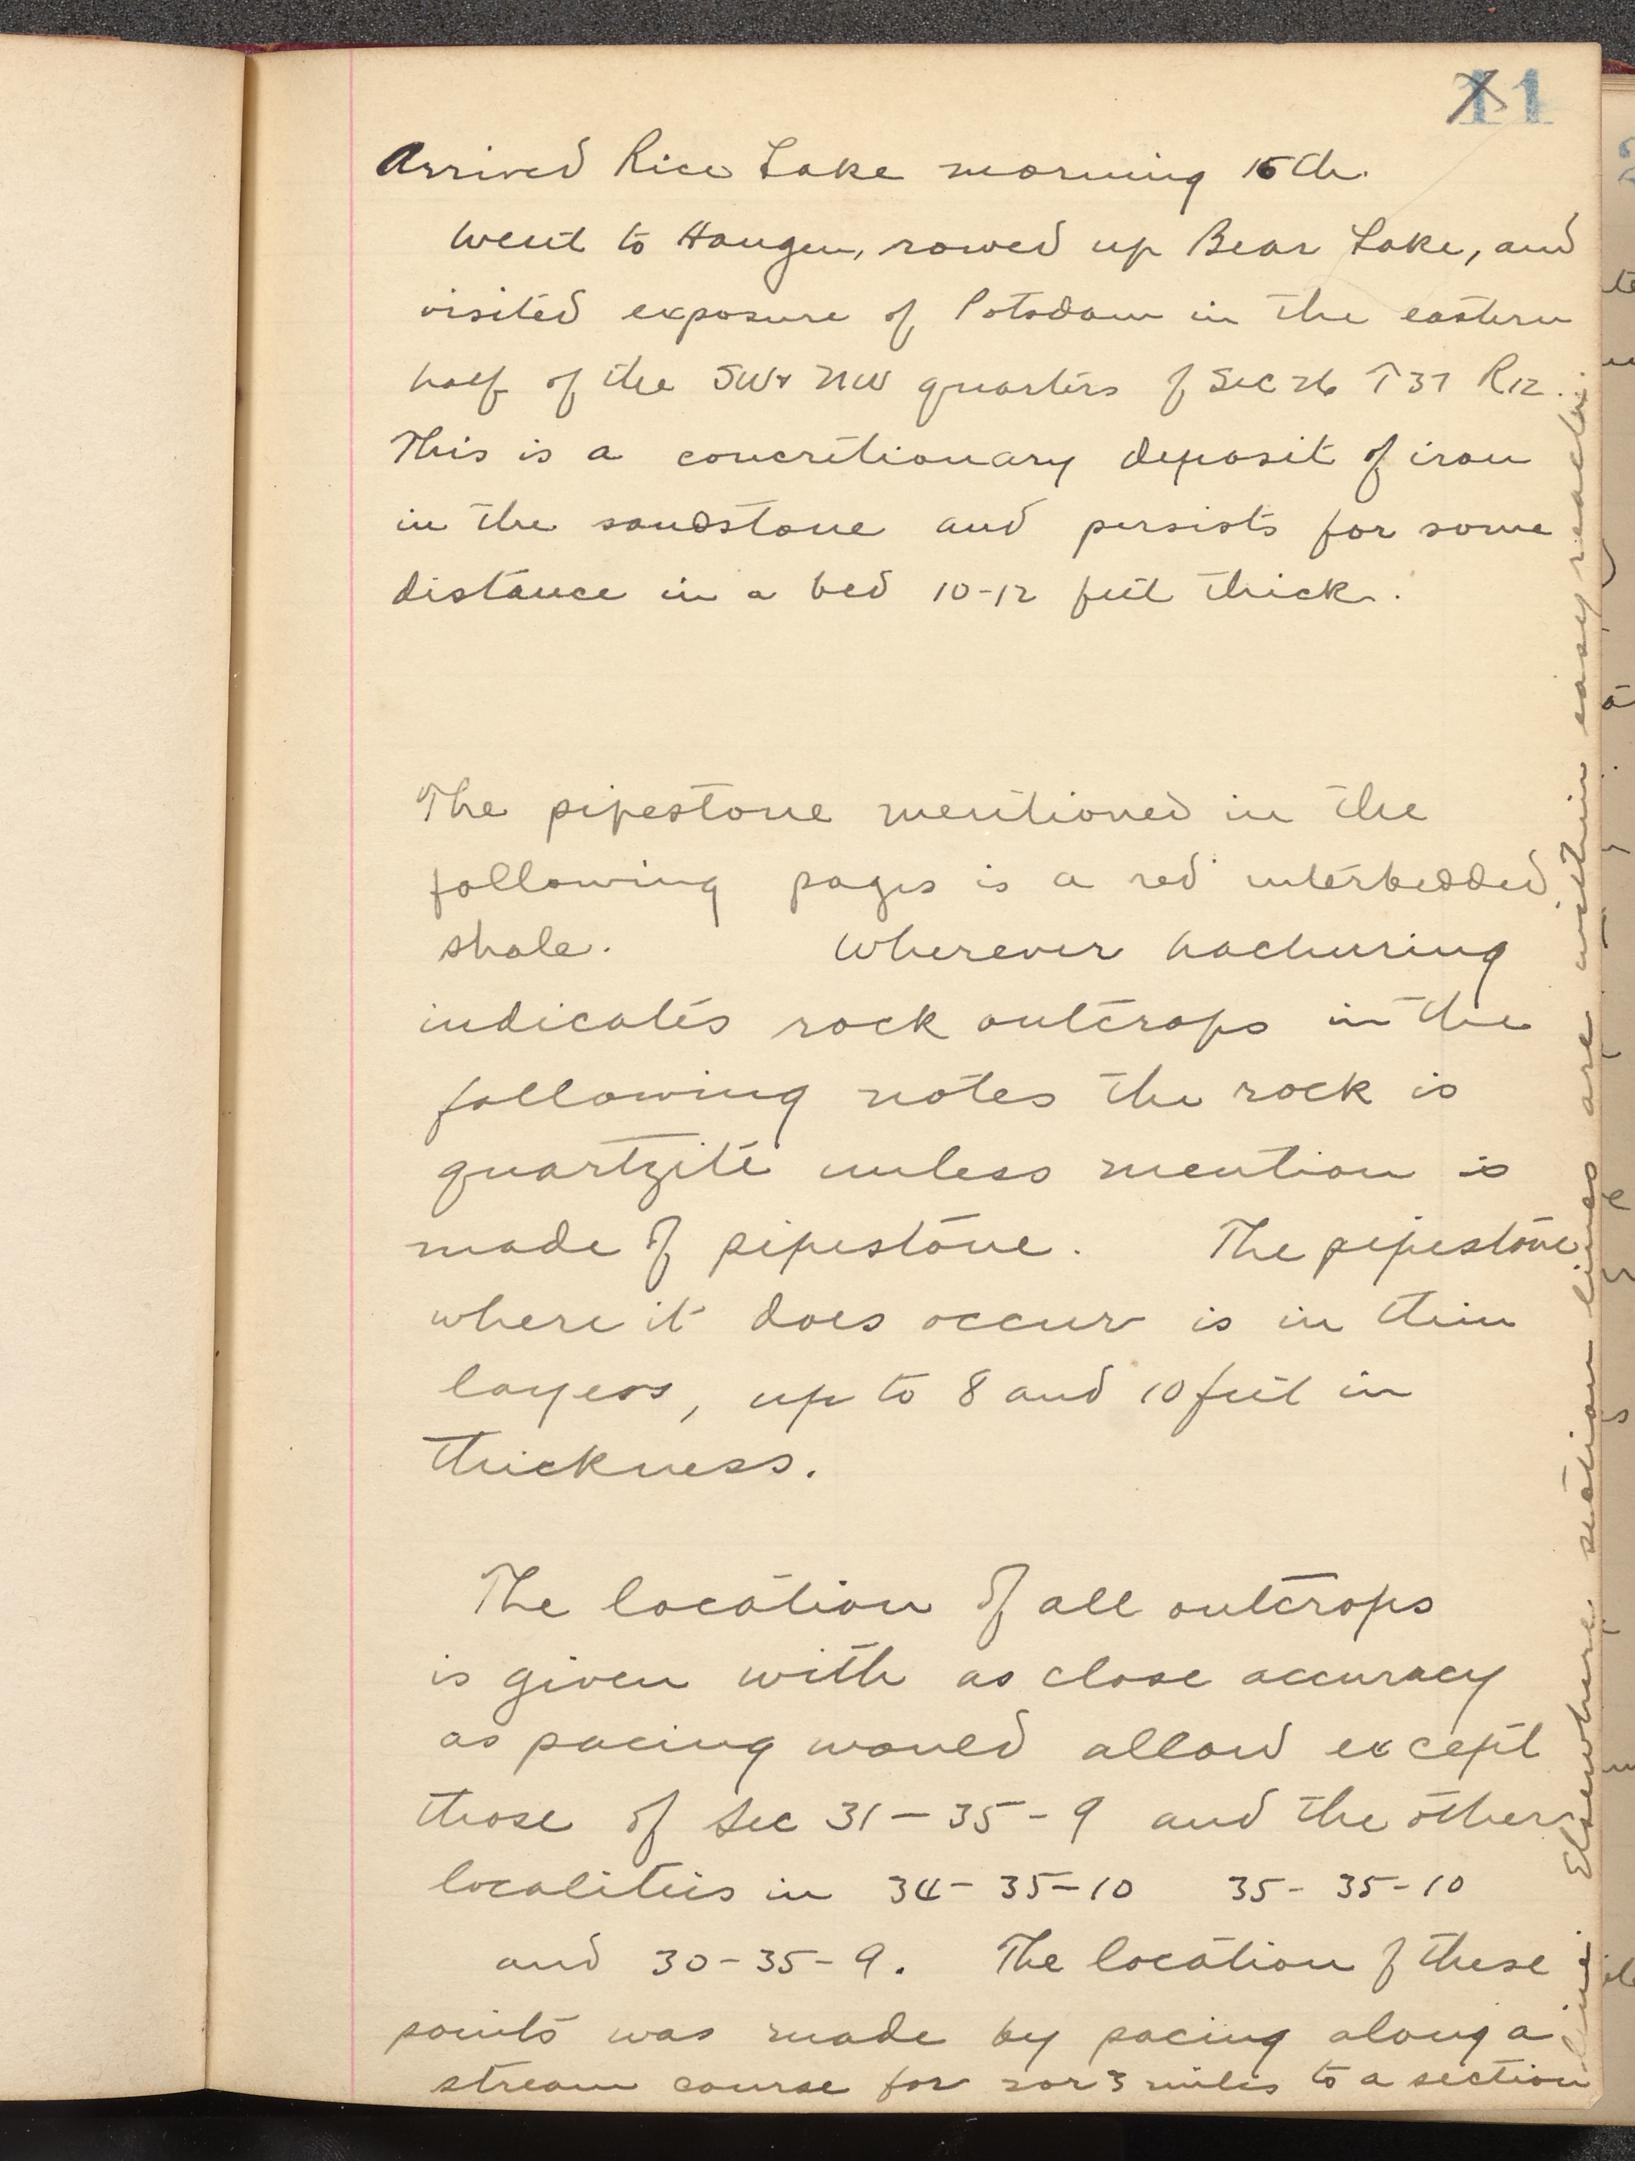 11
Arrived Rice Lake morning 15th.
Went to Haugen, rowed up Bear Lake, and
visited exposure of Potsdam in the eastern
half of the SW & NW quarters of Sec 26 T37 R12.
This is a concretionary deposit of iron
in the sandstone and persists for some
distance in a bed 10-12 feet thick.
The pipestone mentioned in the
following pages is a red interbedded
shale. Wherever hachuring
indicates rock outcrops in the
following notes the rock is
quartzite unless mention is
made of pipestone. The pipestone
where it does occur is in thin
layers, up to 8 and 10 feet in
thickness.
The location of all outcrops
is given with as close accuracy
as pacing would allow except
those of Sec 31-35-9 and the other
localities in 34-35-10 35-35-10
and 30-35-9. The location of these
points was made by pacing along a
stream course for 2 or 3 miles to a section
line. Elsewhere section lines are within easy reach.